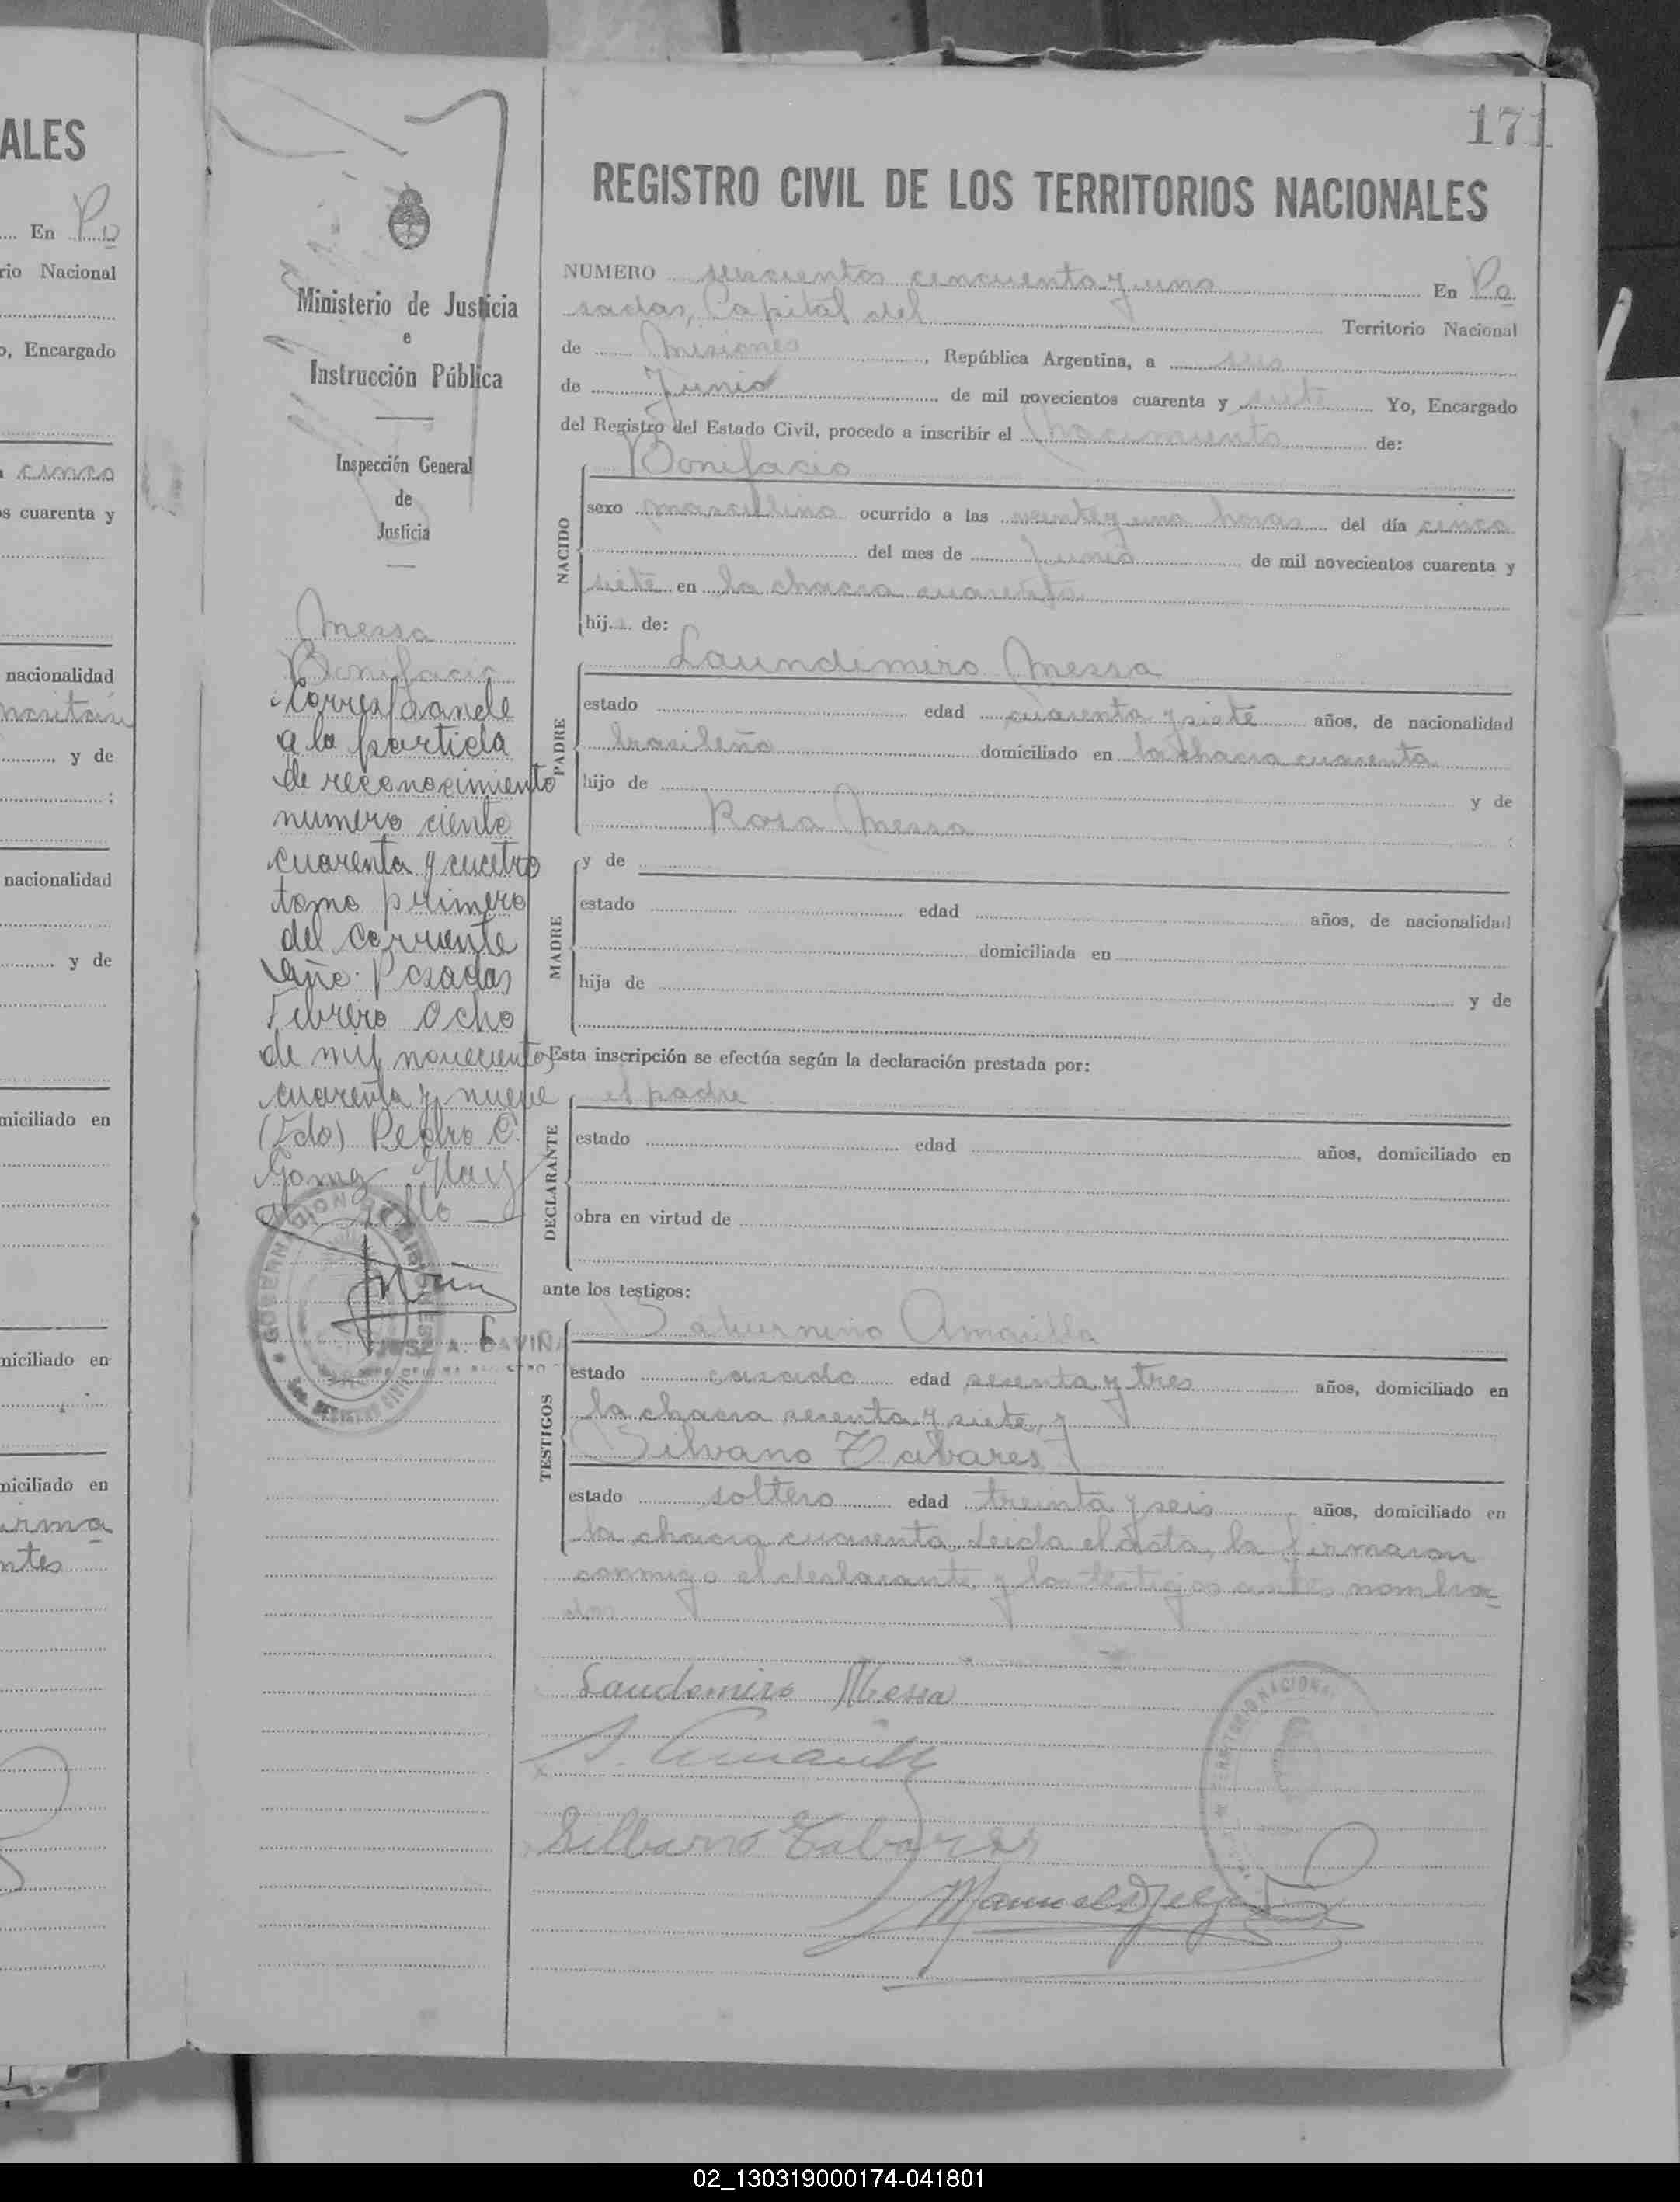 ALES
En Po
rio Nacional
o, Encargado
cinco
os cuarenta y
nacionalidad
y de
nacionalidad
y de
miciliado en
miciliado en
miciliado en
irma
ntes
171
REGISTRO CIVIL DE LOS TERRITORIOS NACIONALES
Ministerio de Justicia
e
Instrucción Pública
Inspección General
de
Justicia
Messa
Bonifacio
Corresponde
a la partida
de reconocimiento
numero ciento
cuarenta y cuatro
tomo primero
del corriente
año. Posadas
Febrero ocho
de mil novecientos
cuarenta y nueve
(Fdo) Pedro C.
Gomez
GOBERNACION DE MISIONES
JOSE A. GAVIÑA
NUMERO seiscientos cincuenta y uno En Po
sadas, Capital del Territorio Nacional
de Misiones, República Argentina, a seis
de Junio de mil novecientos cuarenta y siete Yo, Encargado
del Registro del Estado Civil, procedo a inscribir el nacimiento de:
NACIDO
Bonifacio
sexo masculino ocurrido a las veinte y una horas del día cinco
del mes de Junio de mil novecientos cuarenta y
siete en la chacra cuarenta
hijo de:
PADRE
Laundimiro Messa
estado edad cuarenta y siete años, de nacionalidad
brasileña domiciliado en la chacra cuarenta
hijo de y de
Rosa Messa
MADRE
y de
estado edad años, de nacionalidad
domiciliada en
hija de y de
Esta inscripción se efectúa según la declaración prestada por:
DECLARANTE
el padre
estado edad años, domiciliado en
obra en virtud de
ante los testigos:
TESTIGOS
Saturnino Amarilla
estado casado edad sesenta y tres años, domiciliado en
la chacra sesenta y siete, y
Silvano Tabares
estado soltero edad treinta y seis años, domiciliado en
la chacra cuarenta. Leida el acta, la firmaron
conmigo el declarante y los testigos antes nombra
dos
Laudemiro Messa
S. Amarilla
Silbano Tabares
TERRITORIO NACIONAL
Manuel
02_130319000174-041801